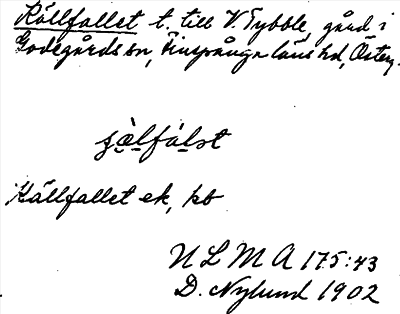 Källfallet t. till V. Tybble, gård i
Godegårds sn, Finspånga läns hd, Österg.
Källfallet ek, kb
ULMA 175:43
D. Nylund 1902